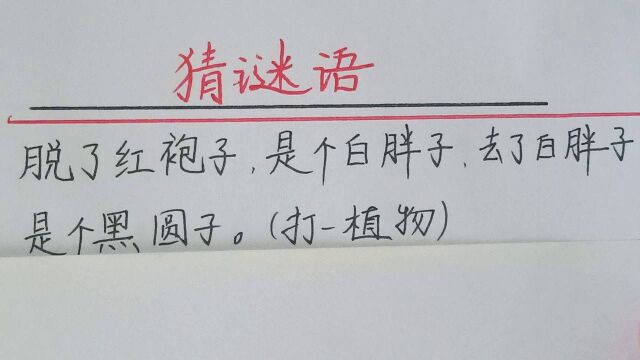 猜谜语
脱了红袍子,是个白胖子,去了白胖子
是个黑圆子。(打一植物)